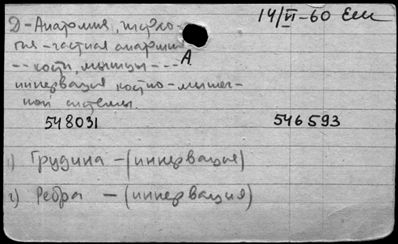 Д-Анатомия, че
14/VI-60
гия-частная анатомия
-- кости, мышцы --- А
иннервация костно-мышеч-
ной системы.
548031 546593
1) Грудина - (иннервация)
2) Ребра - (иннервация)